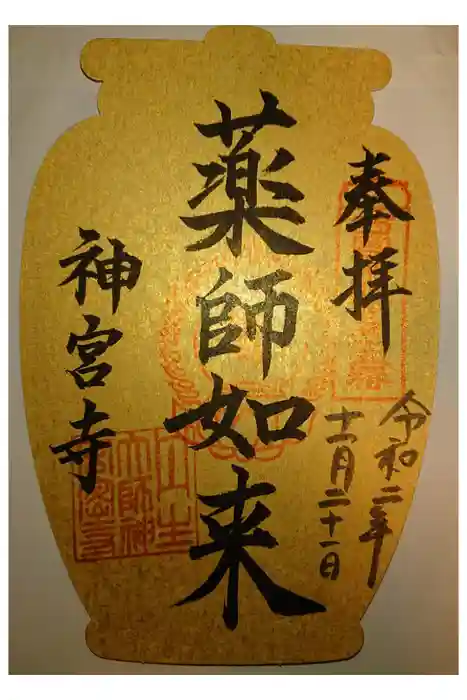 奉拝
令和二年
十一月二十一日
薬師如来
神宮寺